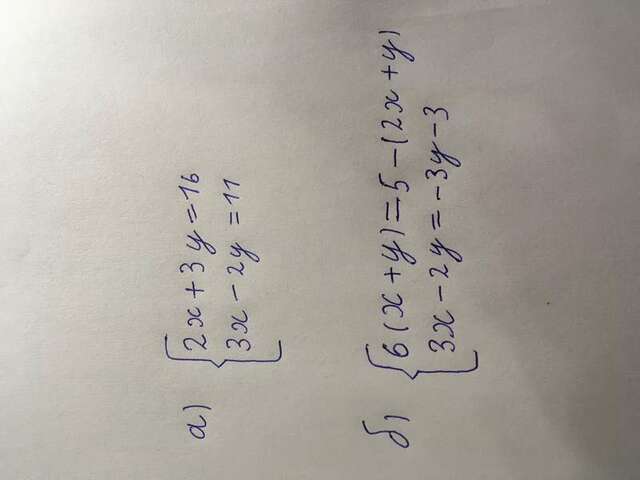 а) 2x+3y=16
3x-2y=11
б) 6(x+y)=5-(2x+y)
3x-2y=-3y-3